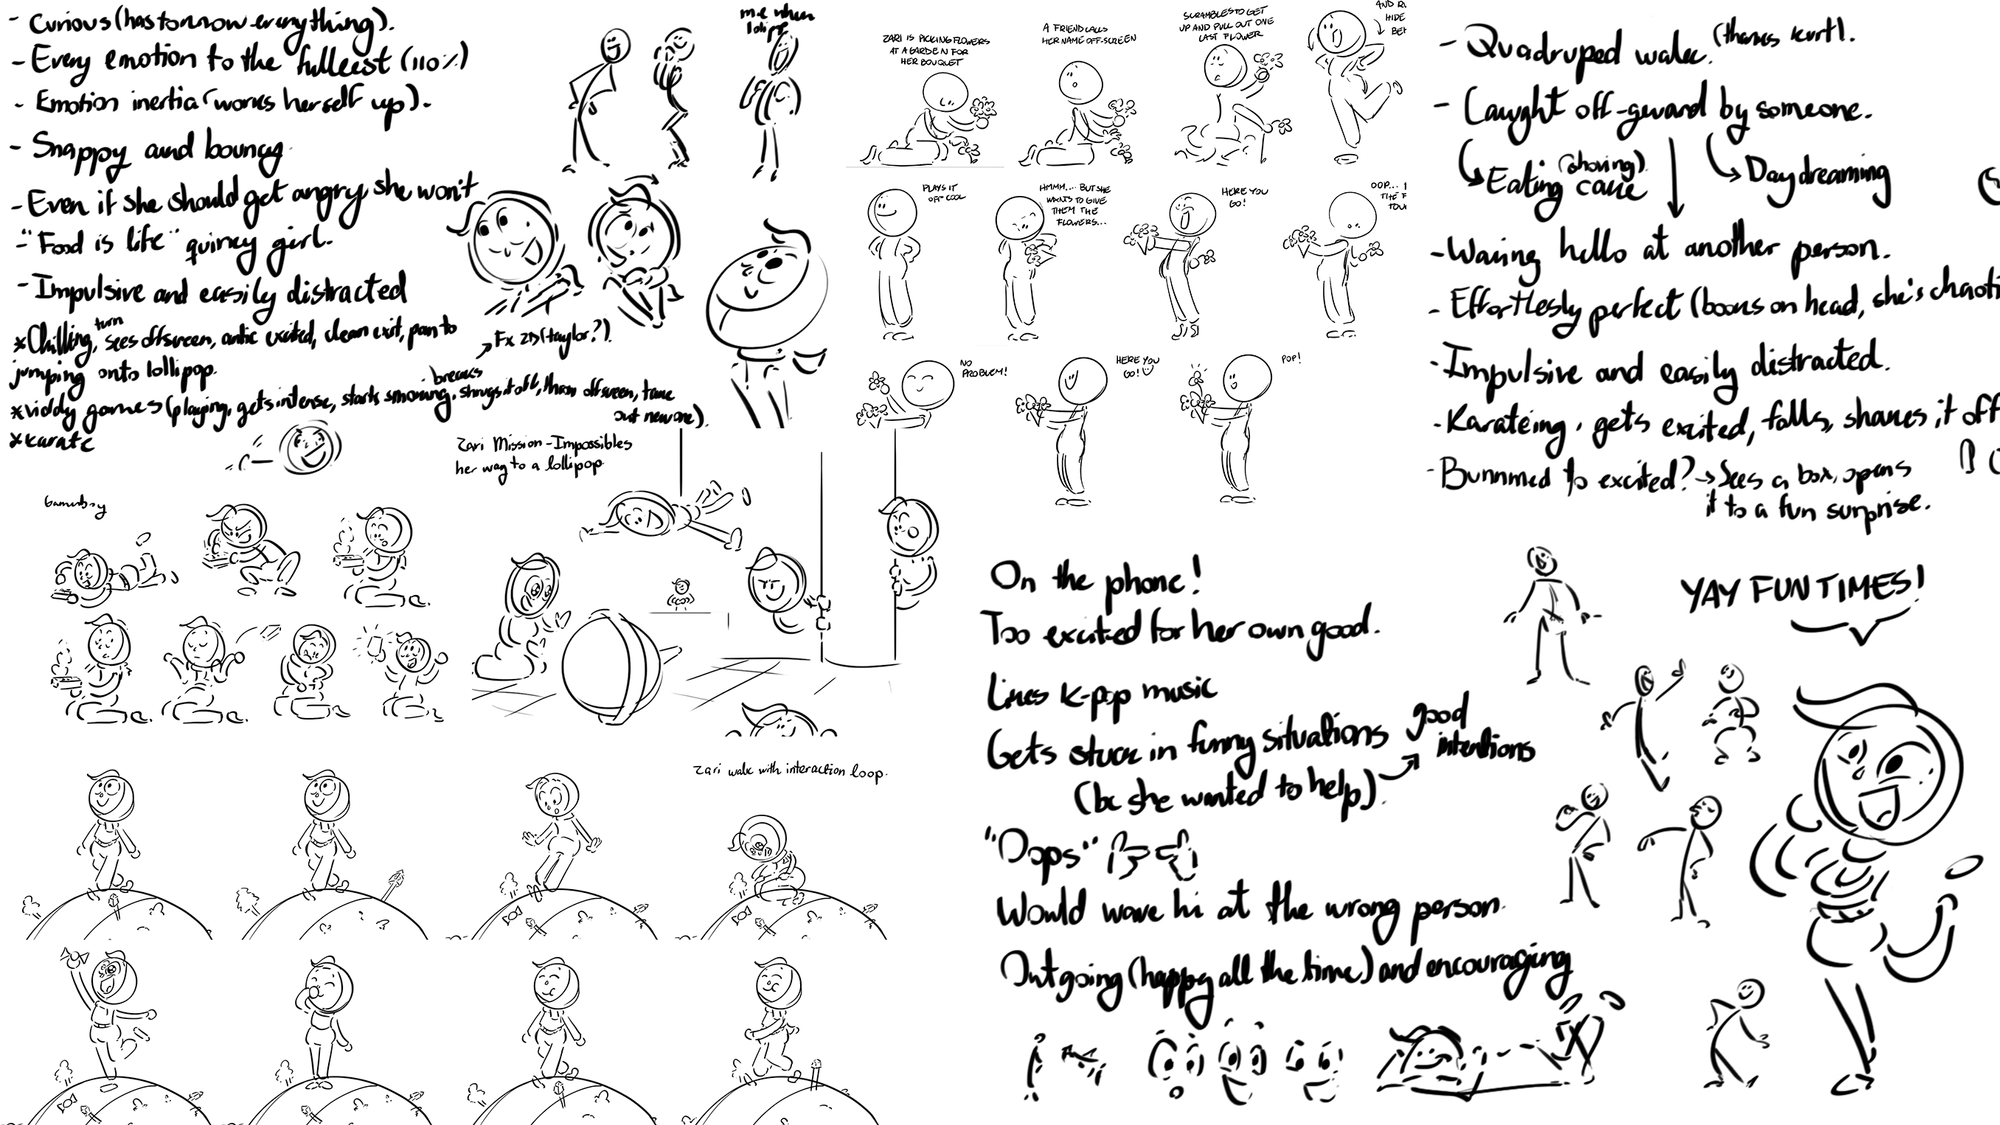 - Curious (has to know everything).
- Every emotion to the fullest (110%)
- Emotion inertia (works herself up).
- Snappy and bouncy
- Even if she should get angry she won't
- "Food is life" quirky girl.
- Impulsive and easily distracted
* Chilling, turn sees offscreen, antic excited, clean exit, pan to
jumping onto lollipop.
Fx 2D (taylor?).
* viddy games (playing, gets intense, starts smoking, breaks shrugs it off, throw offscreen, take
out new one).
* karate
me when
ZARI IS PICKING FLOWERS
AT A GARDEN FOR
HER BOUQUET
A FRIEND CALLS
HER NAME OFF-SCREEN
SCRAMBLES TO GET
UP AND PULL OUT ONE
LAST FLOWER
HIDE
PLAYS IT
OFF COOL
HMMM... BUT SHE
WANTS TO GIVE
THEM THE
FLOWERS...
HERE YOU
GO!
OOP...
NO
PROBLEM!
HERE YOU
GO!
POP!
Zari Mission-Impossibles
her way to a lollipop
Gameboy
Zari walk with interaction loop.
- Quadruped walk. (thanks kurt).
- Caught off-guard by someone.
Eating (shoving) cake
Daydreaming
- Waving hello at another person.
- Effortlessly perfect (books on head, she's chaoti
- Impulsive and easily distracted.
- Karateing. gets excited, falls, shakes it off
- Bummed to excited? → Sees a box, opens
it to a fun surprise.
On the phone!
Too excited for her own good.
Likes K-pop music
Gets stuck in funny situations
(bc she wanted to help).
good
intentions
"Oops"
Would wave hi at the wrong person.
Outgoing (happy all the time) and encouraging
YAY FUN TIMES!